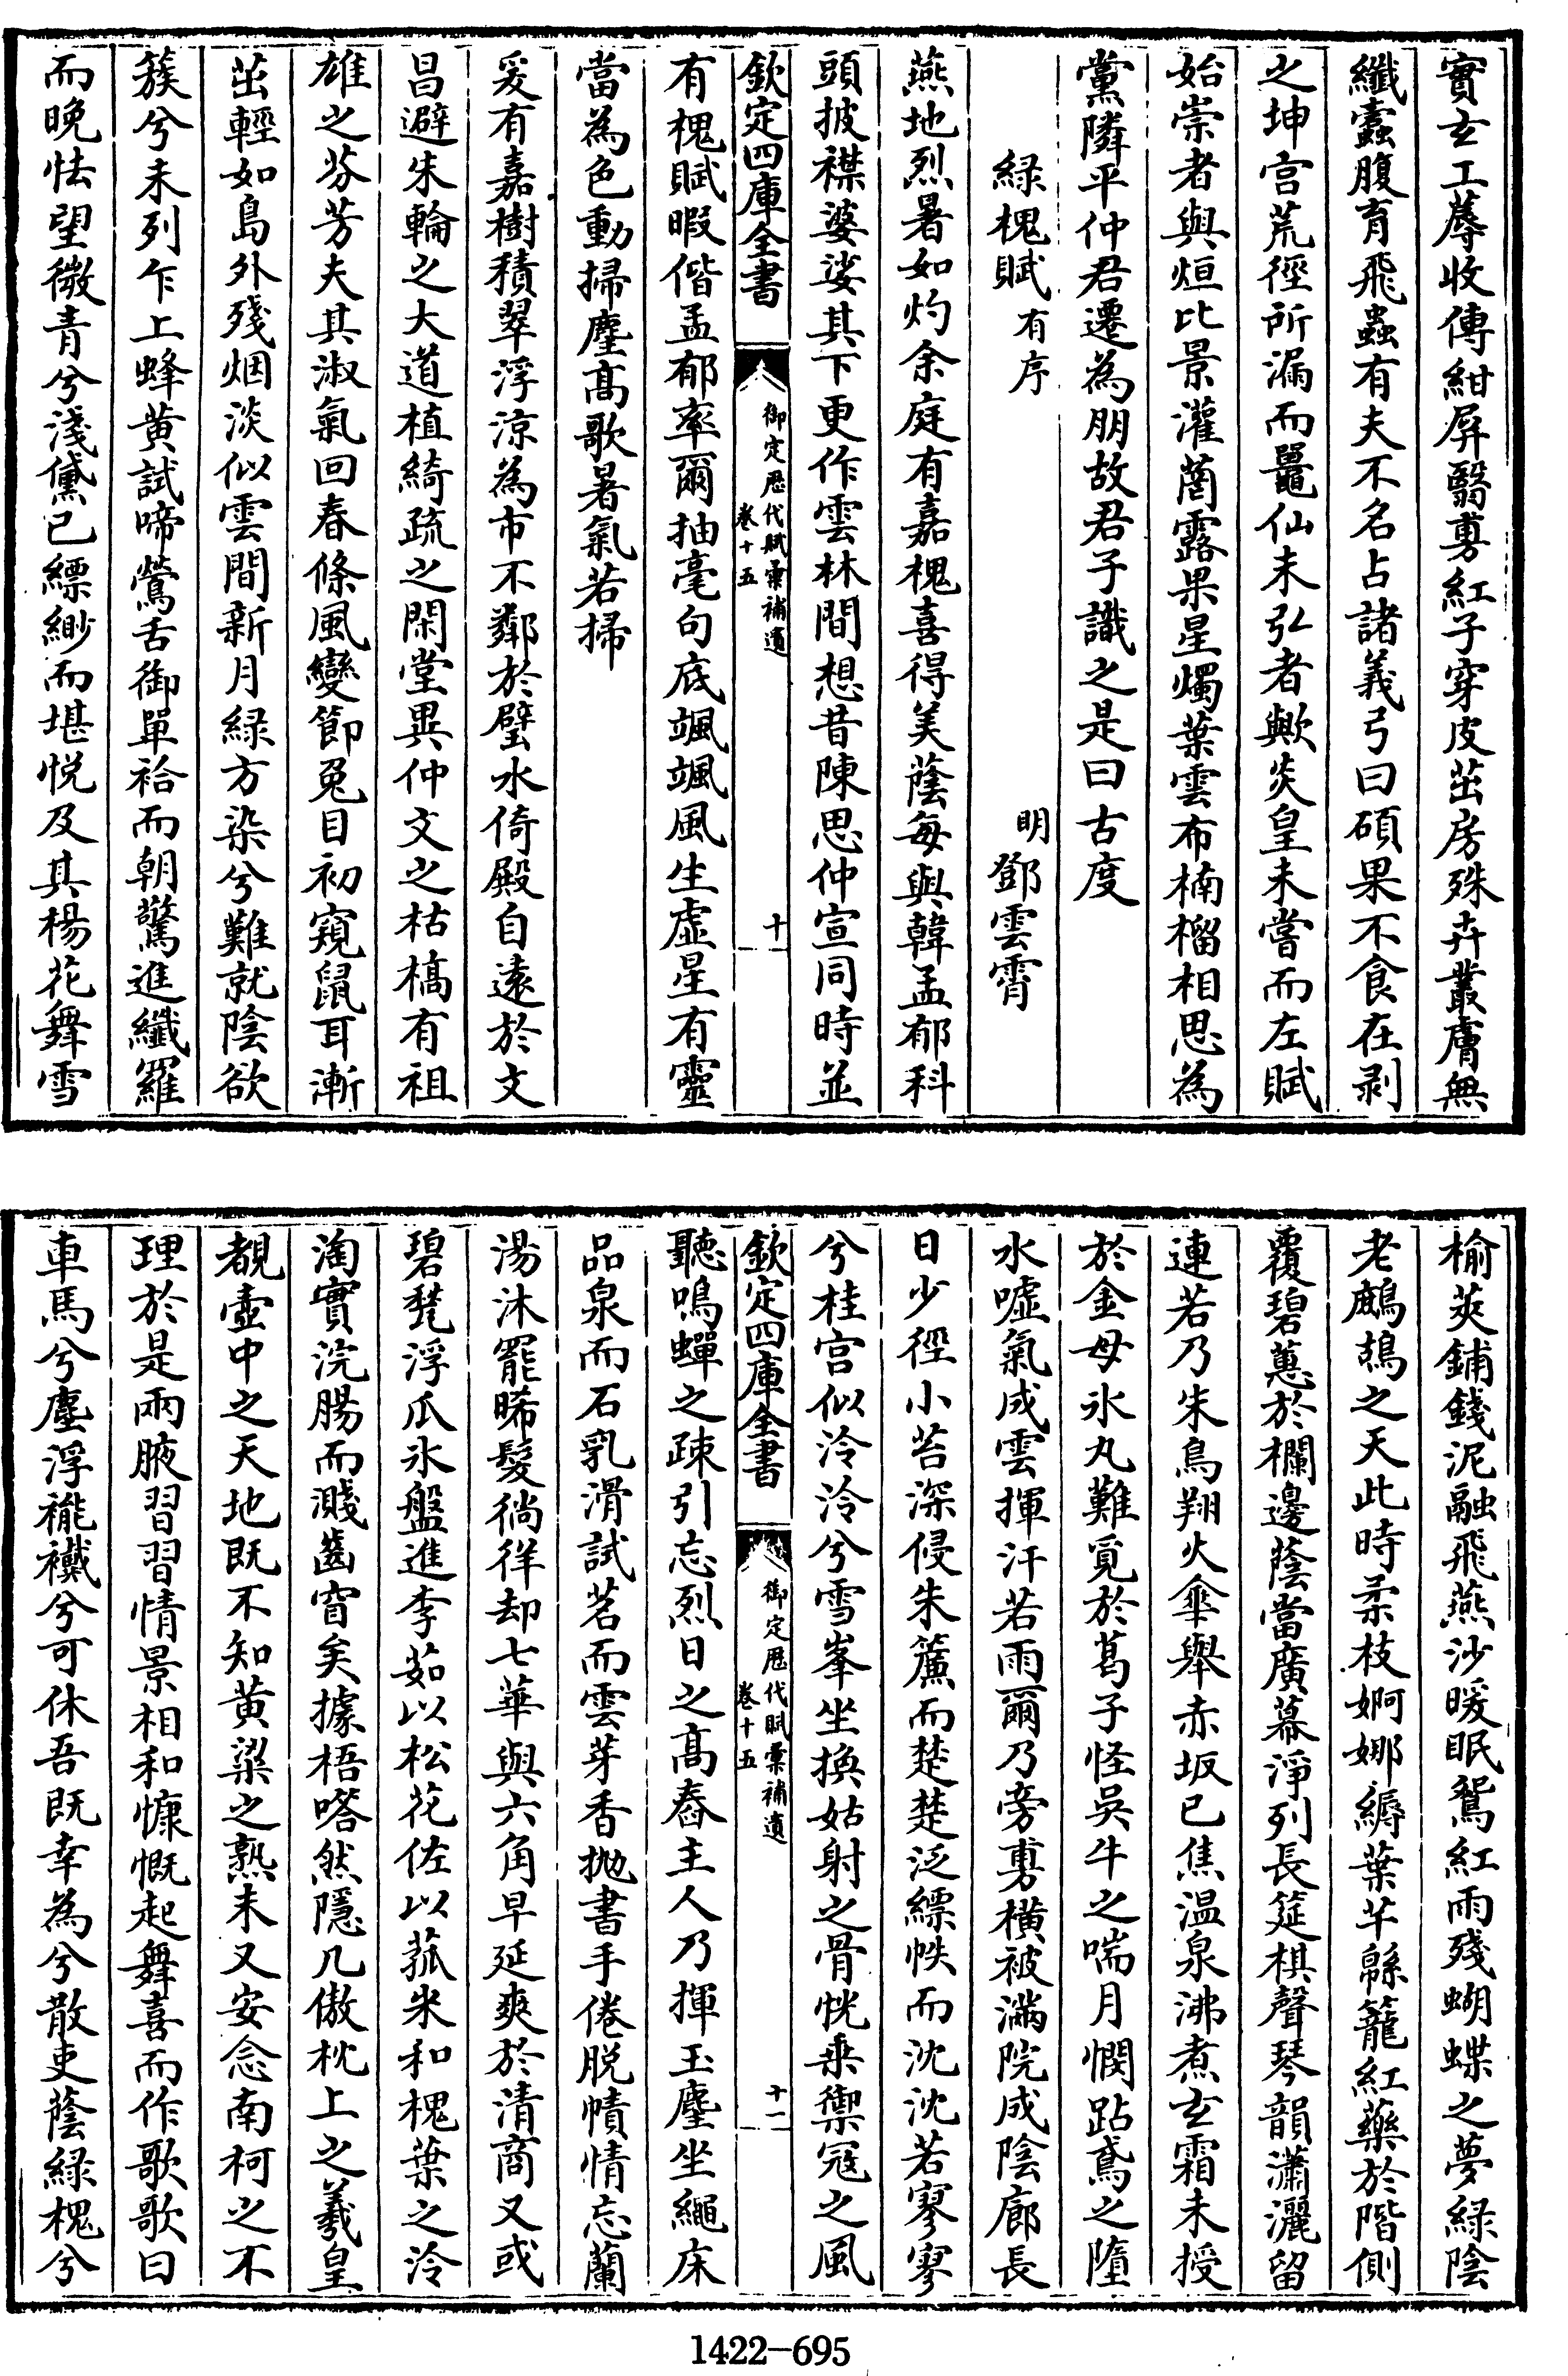 實玄工蓐收傳紺屏翳剪紅子穿皮茁房殊卉叢膚無
纖蠹腹育飛蟲有夫不名占諸義弓曰碩果不食在剥
之坤宫荒徑所漏而鼉仙未弘者歟炎皇未嘗而左賦
始崇者與烜比景灌蔨露果星燭葉雲布楠榴相思為
黨隣平仲君遷為朋故君子識之是曰古度
緑槐賦有序 明鄧雲霄
燕地烈暑如灼余庭有嘉槐喜得美蔭每與韓孟郁科
頭披襟婆娑其下更作雲林間想昔陳思仲宣同時並
欽定四庫全書 御定歷代賦彙補遺 卷十五 十
有槐賦暇偕孟郁率爾抽毫句底颯颯風生虛星有靈
當為色動掃塵髙歌暑氣若掃
爰有嘉樹積翠浮涼為市不鄰於璧水倚殿自遠於文
昌避朱輪之大道植綺疏之閑堂異仲文之枯槁有祖
雄之芬芳夫其淑氣回春條風變節兔目初窺鼠耳漸
茁輕如島外殘烟淡似雲間新月緑方染兮難就陰欲
簇兮未列乍上蜂黄試啼鶯舌御單袷而朝驚進纖羅
而晚怯望微青兮淺黛已縹緲而堪悦及其楊花舞雪
榆莢鋪錢泥融飛燕沙暖眠鴛紅雨殘蝴蝶之夢緑陰
老鷓鴣之天此時柔枝婀娜縟葉芊緜籠紅藥於階側
覆碧蕙於欄邊蔭當廣幕淨列長筵棋聲琴韻瀟灑留
連若乃朱鳥翔火傘舉赤坂已焦温泉沸煮玄霜未授
於金母氷丸難覓於葛子怪吳牛之喘月憫跕鳶之墮
水噓氣成雲揮汗若雨爾乃旁剪横被滿院成陰廊長
日少徑小苔深侵朱簾而楚楚泛縹帙而沈沈若寥寥
兮桂宫似泠泠兮雪峯坐換姑射之骨恍乗禦寇之風
欽定四庫全書 御定歷代賦彙補遺 卷十五 十一
聽鳴蟬之疎引忘烈日之髙舂主人乃揮玉麈坐繩床
品泉而石乳滑試茗而雲芽香抛書手倦脱幘情忘蘭
湯沐罷晞髮徜徉却七華與六角早延爽於清商又或
碧甃浮瓜氷盤進李茹以松花佐以菰米和槐葉之泠
淘實浣腸而濺齒窅矣據梧嗒然隱几傲枕上之羲皇
覩壺中之天地既不知黄粱之熟未又安念南柯之不
理於是兩腋習習情景相和慷慨起舞喜而作歌歌曰
車馬兮塵浮䙱襶兮可休吾既幸為兮散吏蔭緑槐兮
1422-695